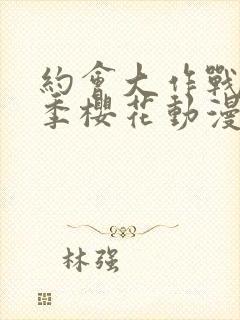 約會大作戰
季櫻花動漫
林强